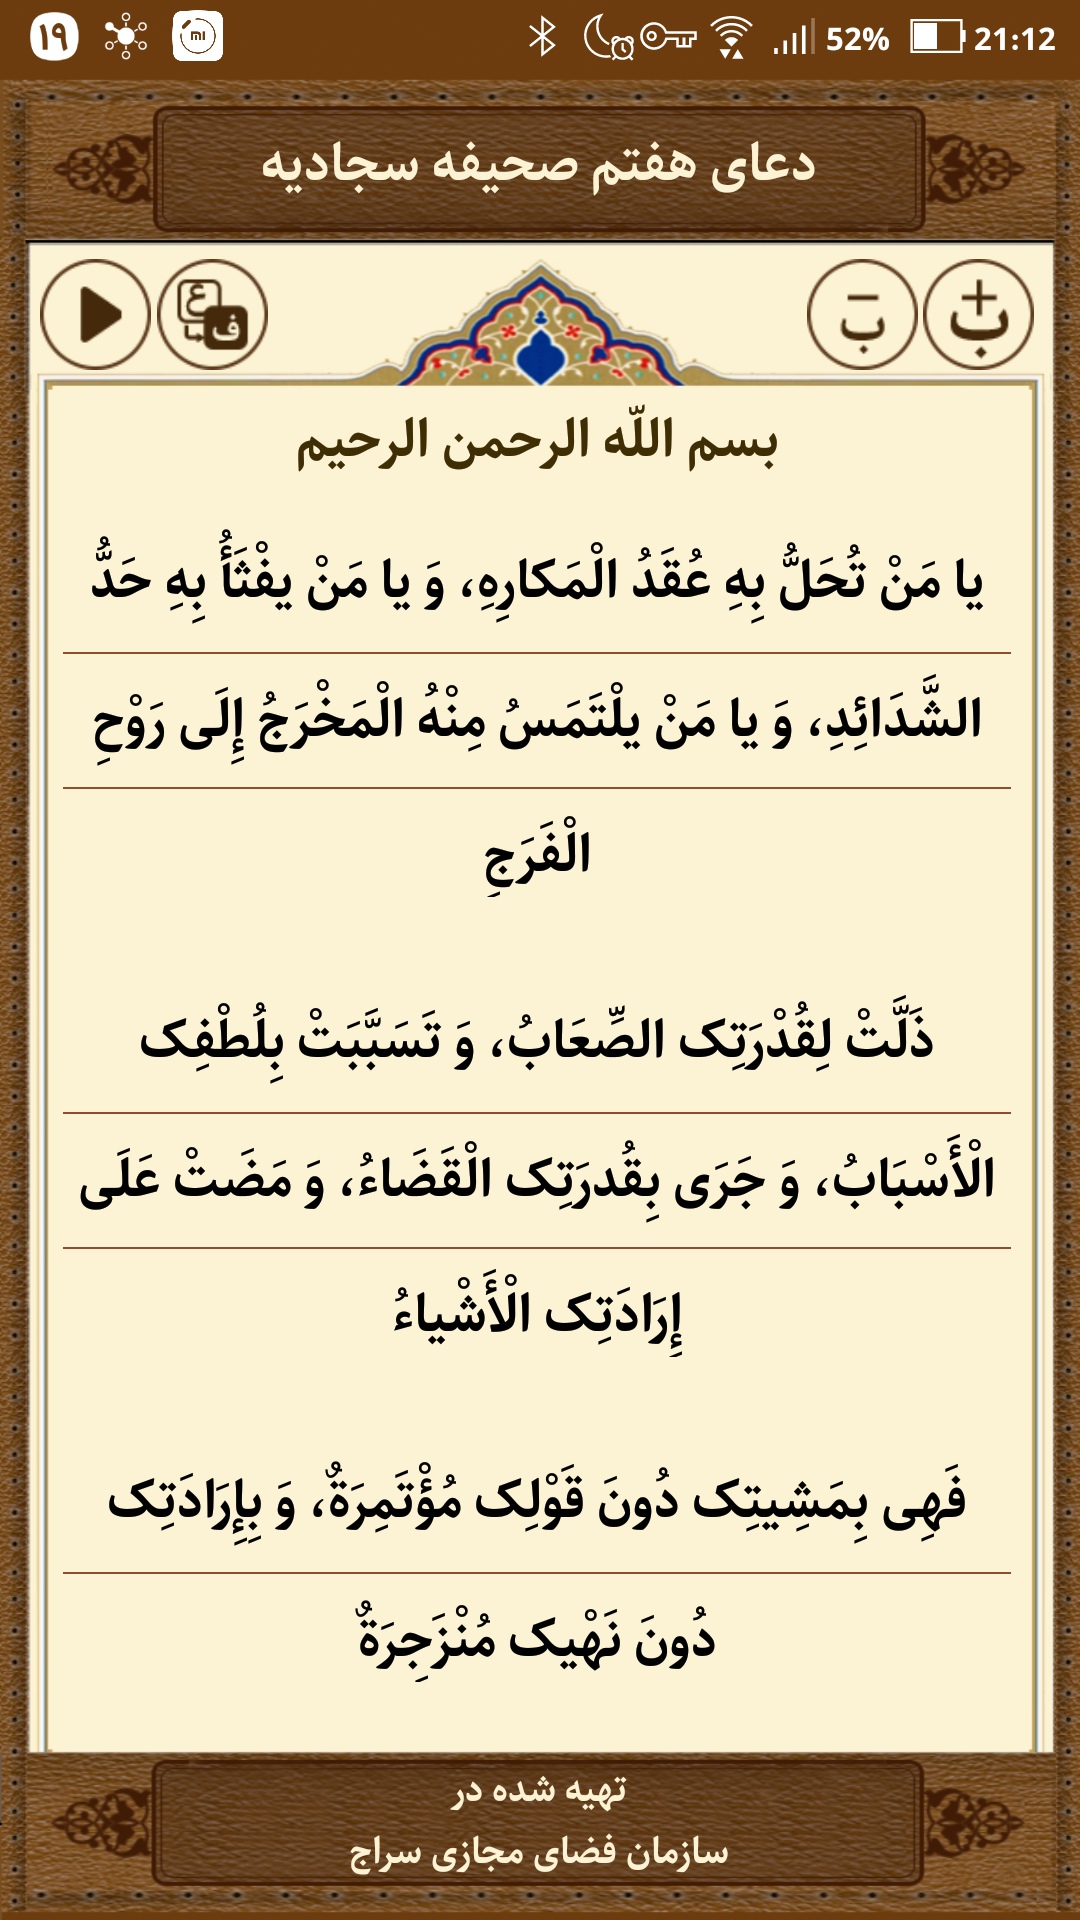 ۱۹ mi 52% 21:12
دعای هفتم صحیفه سجادیه
ع ف ب ب
بسم اللّه الرحمن الرحیم
یا مَنْ تُحَلُّ بِهِ عُقَدُ الْمَکارِهِ، وَ یا مَنْ یفْثَأُ بِهِ حَدُّ
الشَّدَائِدِ، وَ یا مَنْ یلْتَمَسُ مِنْهُ الْمَخْرَجُ إِلَی رَوْحِ
الْفَرَجِ
ذَلَّتْ لِقُدْرَتِک الصِّعَابُ، وَ تَسَبَّبَتْ بِلُطْفِک
الْأَسْبَابُ، وَ جَرَی بِقُدرَتِک الْقَضَاءُ، وَ مَضَتْ عَلَی
إِرَادَتِک الْأَشْیاءُ
فَهِی بِمَشِیتِک دُونَ قَوْلِک مُؤْتَمِرَةٌ، وَ بِإِرَادَتِک
دُونَ نَهْیک مُنْزَجِرَةٌ
تهیه شده در
سازمان فضای مجازی سراج